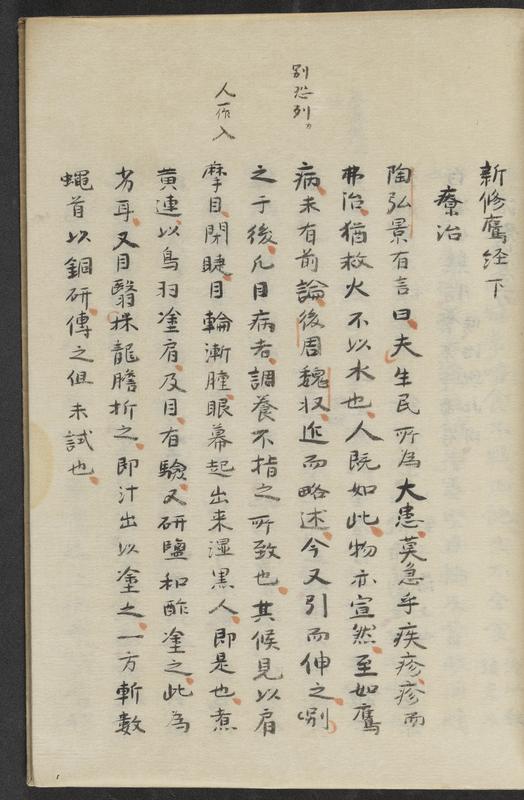 新修鷹経下
療治
陶弘景有言曰夫生民所為大患莫急乎疾疹疹而
弗治猶救火不以水也人既如此物亦宜然至如鷹
病未有前論後周魏収迩而略述今又引而伸之別
之于後凡目病者調養不指之所致也其候見以肩
摩目閉睫目輪漸腫眼幕起出来湿黒人即是也煮
黄連以鳥羽塗肩及目有験又研塩和酢塗之此為
劣耳又目翳採龍膽折之即汁出以塗之一方斬数
蝿首以銅研傅之但未試也
別恐列
人一作入